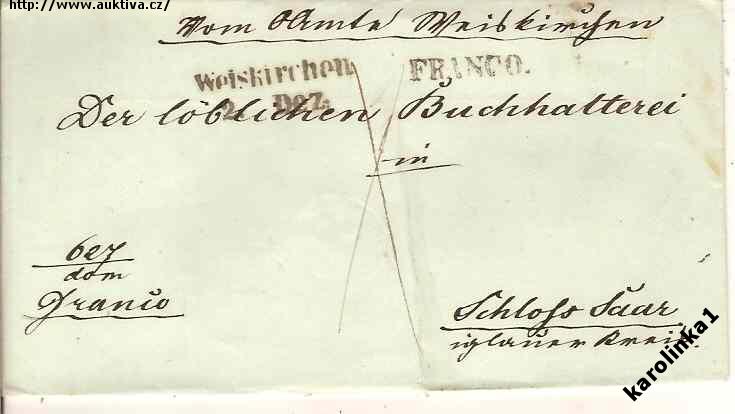 http://www.auktiva.cz/
Vom Amte Weiskirchen
Weiskirchen FRANCO.
2. Dez.
Der löblichen Buchhalterei
in
627
dom
Franco
Schloss Saar
iglauer Kreis
karolinka1